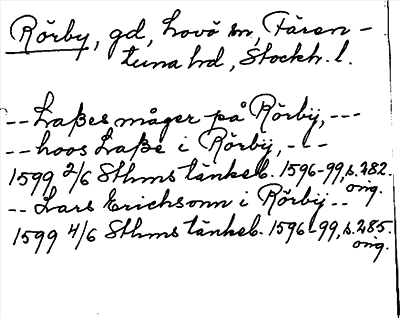 Rörby, gd, Lovö sn, Fären-
tuna hd, Stockh. l.
-- Laßes måger på Rörbÿ, ---
-- hoos Laße i Rörbÿ, ---
1599 2/6 Sthms tänkeb. 1596-99, s. 282.
orig.
-- Lars Erichsonn i Rörbÿ --
1599 4/6 Sthms tänkeb. 1596-99, s. 285.
orig.